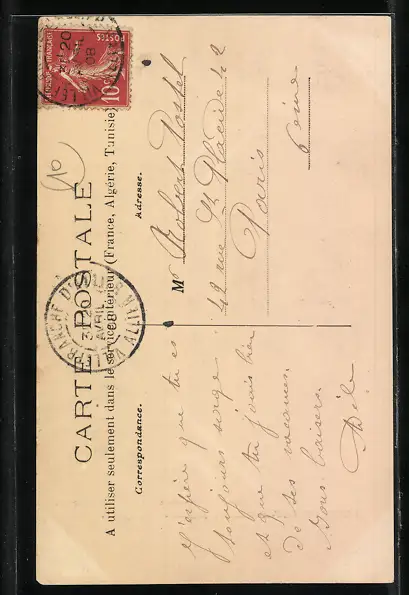 CARTE POSTALE
A utiliser seulement dans le service intérieur (France, Algérie, Tunisie)
Correspondance.
Adresse.
J'espère que tu es
toujours sage
et que tu jouis bien
de tes vacances.
Bons baisers.
M Robert Postel
42 rue St Placide 42
Paris
6 ème
10
POSTES
10
20
08
VILLEFRANCHE D'
AVRIL